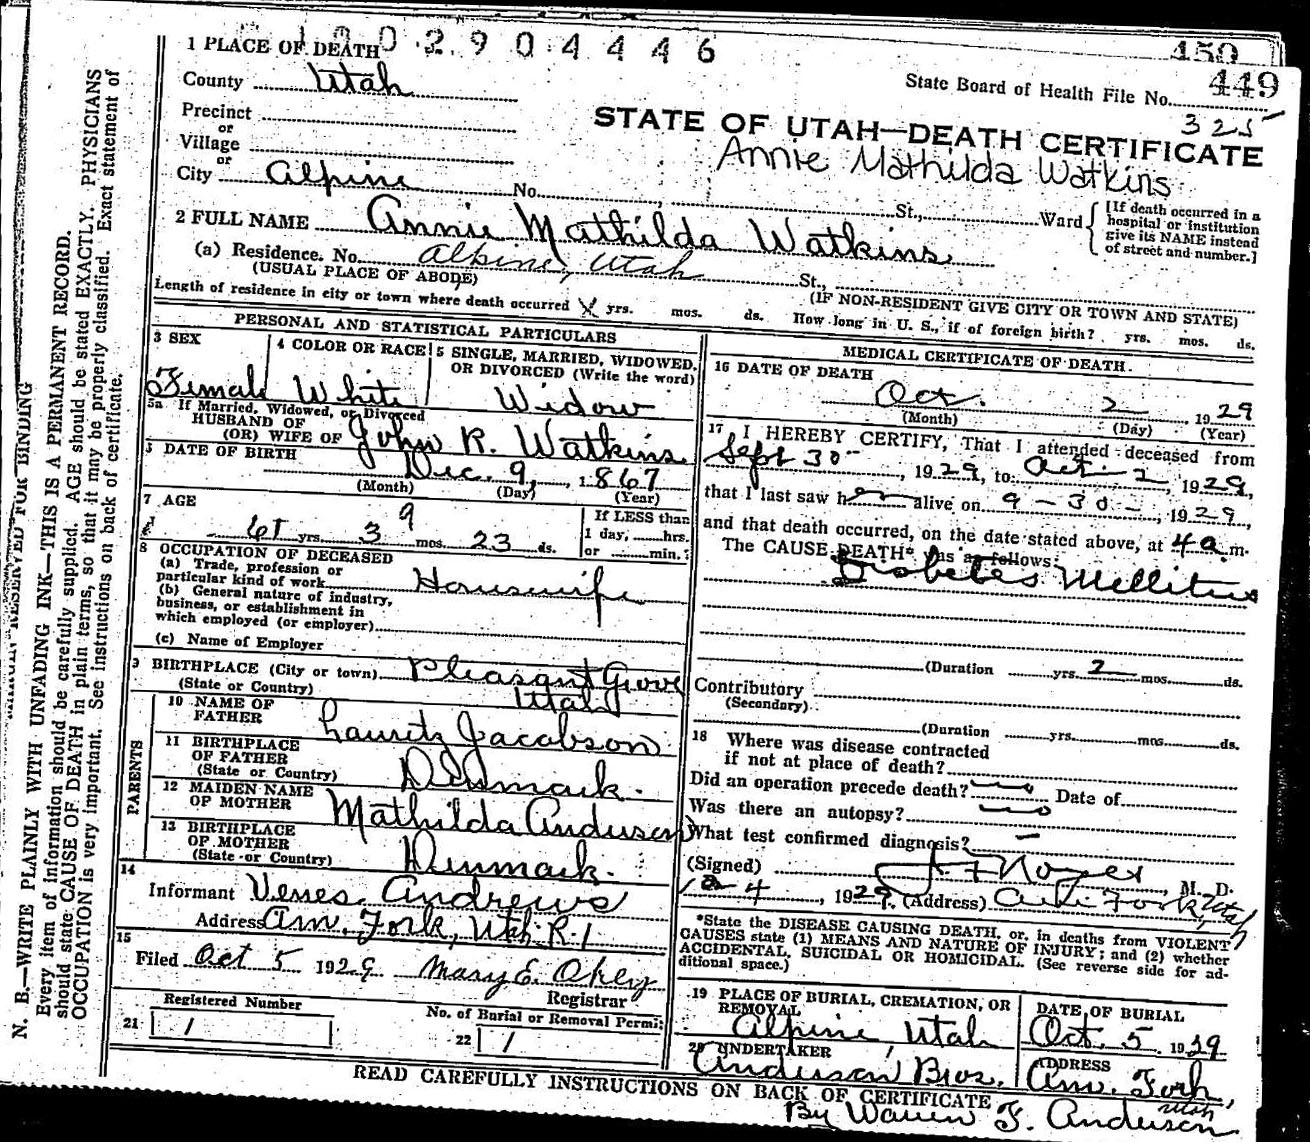 1002904446
450
449
1 PLACE OF DEATH
State Board of Health File No.
325
County Utah
STATE OF UTAH—DEATH CERTIFICATE
Precinct
or
Village
or
Annie Mathilda Watkins
City Alpine No. St., Ward
[If death occurred in a hospital or institution give its NAME instead of street and number.]
2 FULL NAME Annie Mathilda Watkins
(a) Residence. No. Alpine, Utah St.,
(USUAL PLACE OF ABODE)
(IF NON-RESIDENT GIVE CITY OR TOWN AND STATE)
Length of residence in city or town where death occurred X yrs. mos. ds. How long in U. S., if of foreign birth? yrs. mos. ds.
PERSONAL AND STATISTICAL PARTICULARS
3 SEX
4 COLOR OR RACE
5 SINGLE, MARRIED, WIDOWED, OR DIVORCED (Write the word)
Female White Widow
5a If Married, Widowed, or Divorced
HUSBAND OF
(OR) WIFE OF John R. Watkins
DATE OF BIRTH Dec. 9, 1867
(Month) (Day) (Year)
7 AGE
9
61 yrs. 3 mos. 23 ds.
If LESS than
1 day, hrs.
or min.
8 OCCUPATION OF DECEASED
(a) Trade, profession or
particular kind of work Housewife
(b) General nature of industry,
business, or establishment in
which employed (or employer)
(c) Name of Employer
9 BIRTHPLACE (City or town) Pleasant Grove
(State or Country) Utah
PARENTS
10 NAME OF
FATHER Lauritz Jacobson
11 BIRTHPLACE
OF FATHER
(State or Country) Denmark.
12 MAIDEN NAME
OF MOTHER Mathilda Anderson
13 BIRTHPLACE
OF MOTHER
(State or Country) Denmark.
14
Informant Venes Andrews
Address Am. Fork, Utah R. 1
15
Filed Oct 5 1929 Mary E. Okey
Registrar
Registered Number
No. of Burial or Removal Permit
21 1
22 1
MEDICAL CERTIFICATE OF DEATH.
16 DATE OF DEATH
Oct. 2 1929
(Month) (Day) (Year)
17 I HEREBY CERTIFY, That I attended deceased from
Sept 30 , 1929, to Oct 2, 1929,
that I last saw her alive on 9-30-, 1929,
and that death occurred, on the date stated above, at 4 a.m.
The CAUSE DEATH* was as follows:
Diabetes Mellitus
(Duration yrs. 2 mos. ds.
Contributory
(Secondary)
(Duration yrs. mos. ds.
18 Where was disease contracted
if not at place of death?
Did an operation precede death? no Date of
Was there an autopsy? no
What test confirmed diagnosis? -
(Signed) Noyes , M. D.
10-4 , 1929. (Address) Am Fork, Utah
*State the DISEASE CAUSING DEATH, or, in deaths from VIOLENT
CAUSES state (1) MEANS AND NATURE OF INJURY; and (2) whether
ACCIDENTAL, SUICIDAL OR HOMICIDAL. (See reverse side for ad-
ditional space.)
19 PLACE OF BURIAL, CREMATION, OR
REMOVAL
Alpine, Utah
DATE OF BURIAL
Oct. 5 1929
20 UNDERTAKER
Anderson Bros.
ADDRESS
Am. Fork, Utah
READ CAREFULLY INSTRUCTIONS ON BACK OF CERTIFICATE
By Warren F. Anderson
N. B.—WRITE PLAINLY WITH UNFADING INK—THIS IS A PERMANENT RECORD.
Every item of information should be carefully supplied. AGE should be stated EXACTLY. PHYSICIANS
should state CAUSE OF DEATH in plain terms, so that it may be properly classified. Exact statement of
OCCUPATION is very important. See instructions on back of certificate.
RESERVED FOR BINDING